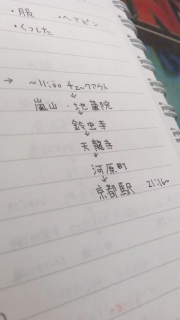 ・服 ・ヘアピン
・くつした
→ ~11:00 チェックアウト
↓
嵐山・地蔵院
↓
鈴虫寺
↓
天龍寺
↓
河原町
↓
京都駅 21:16~